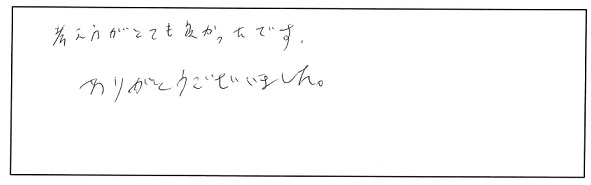 考え方がとても良かったです.
ありがとうございました。